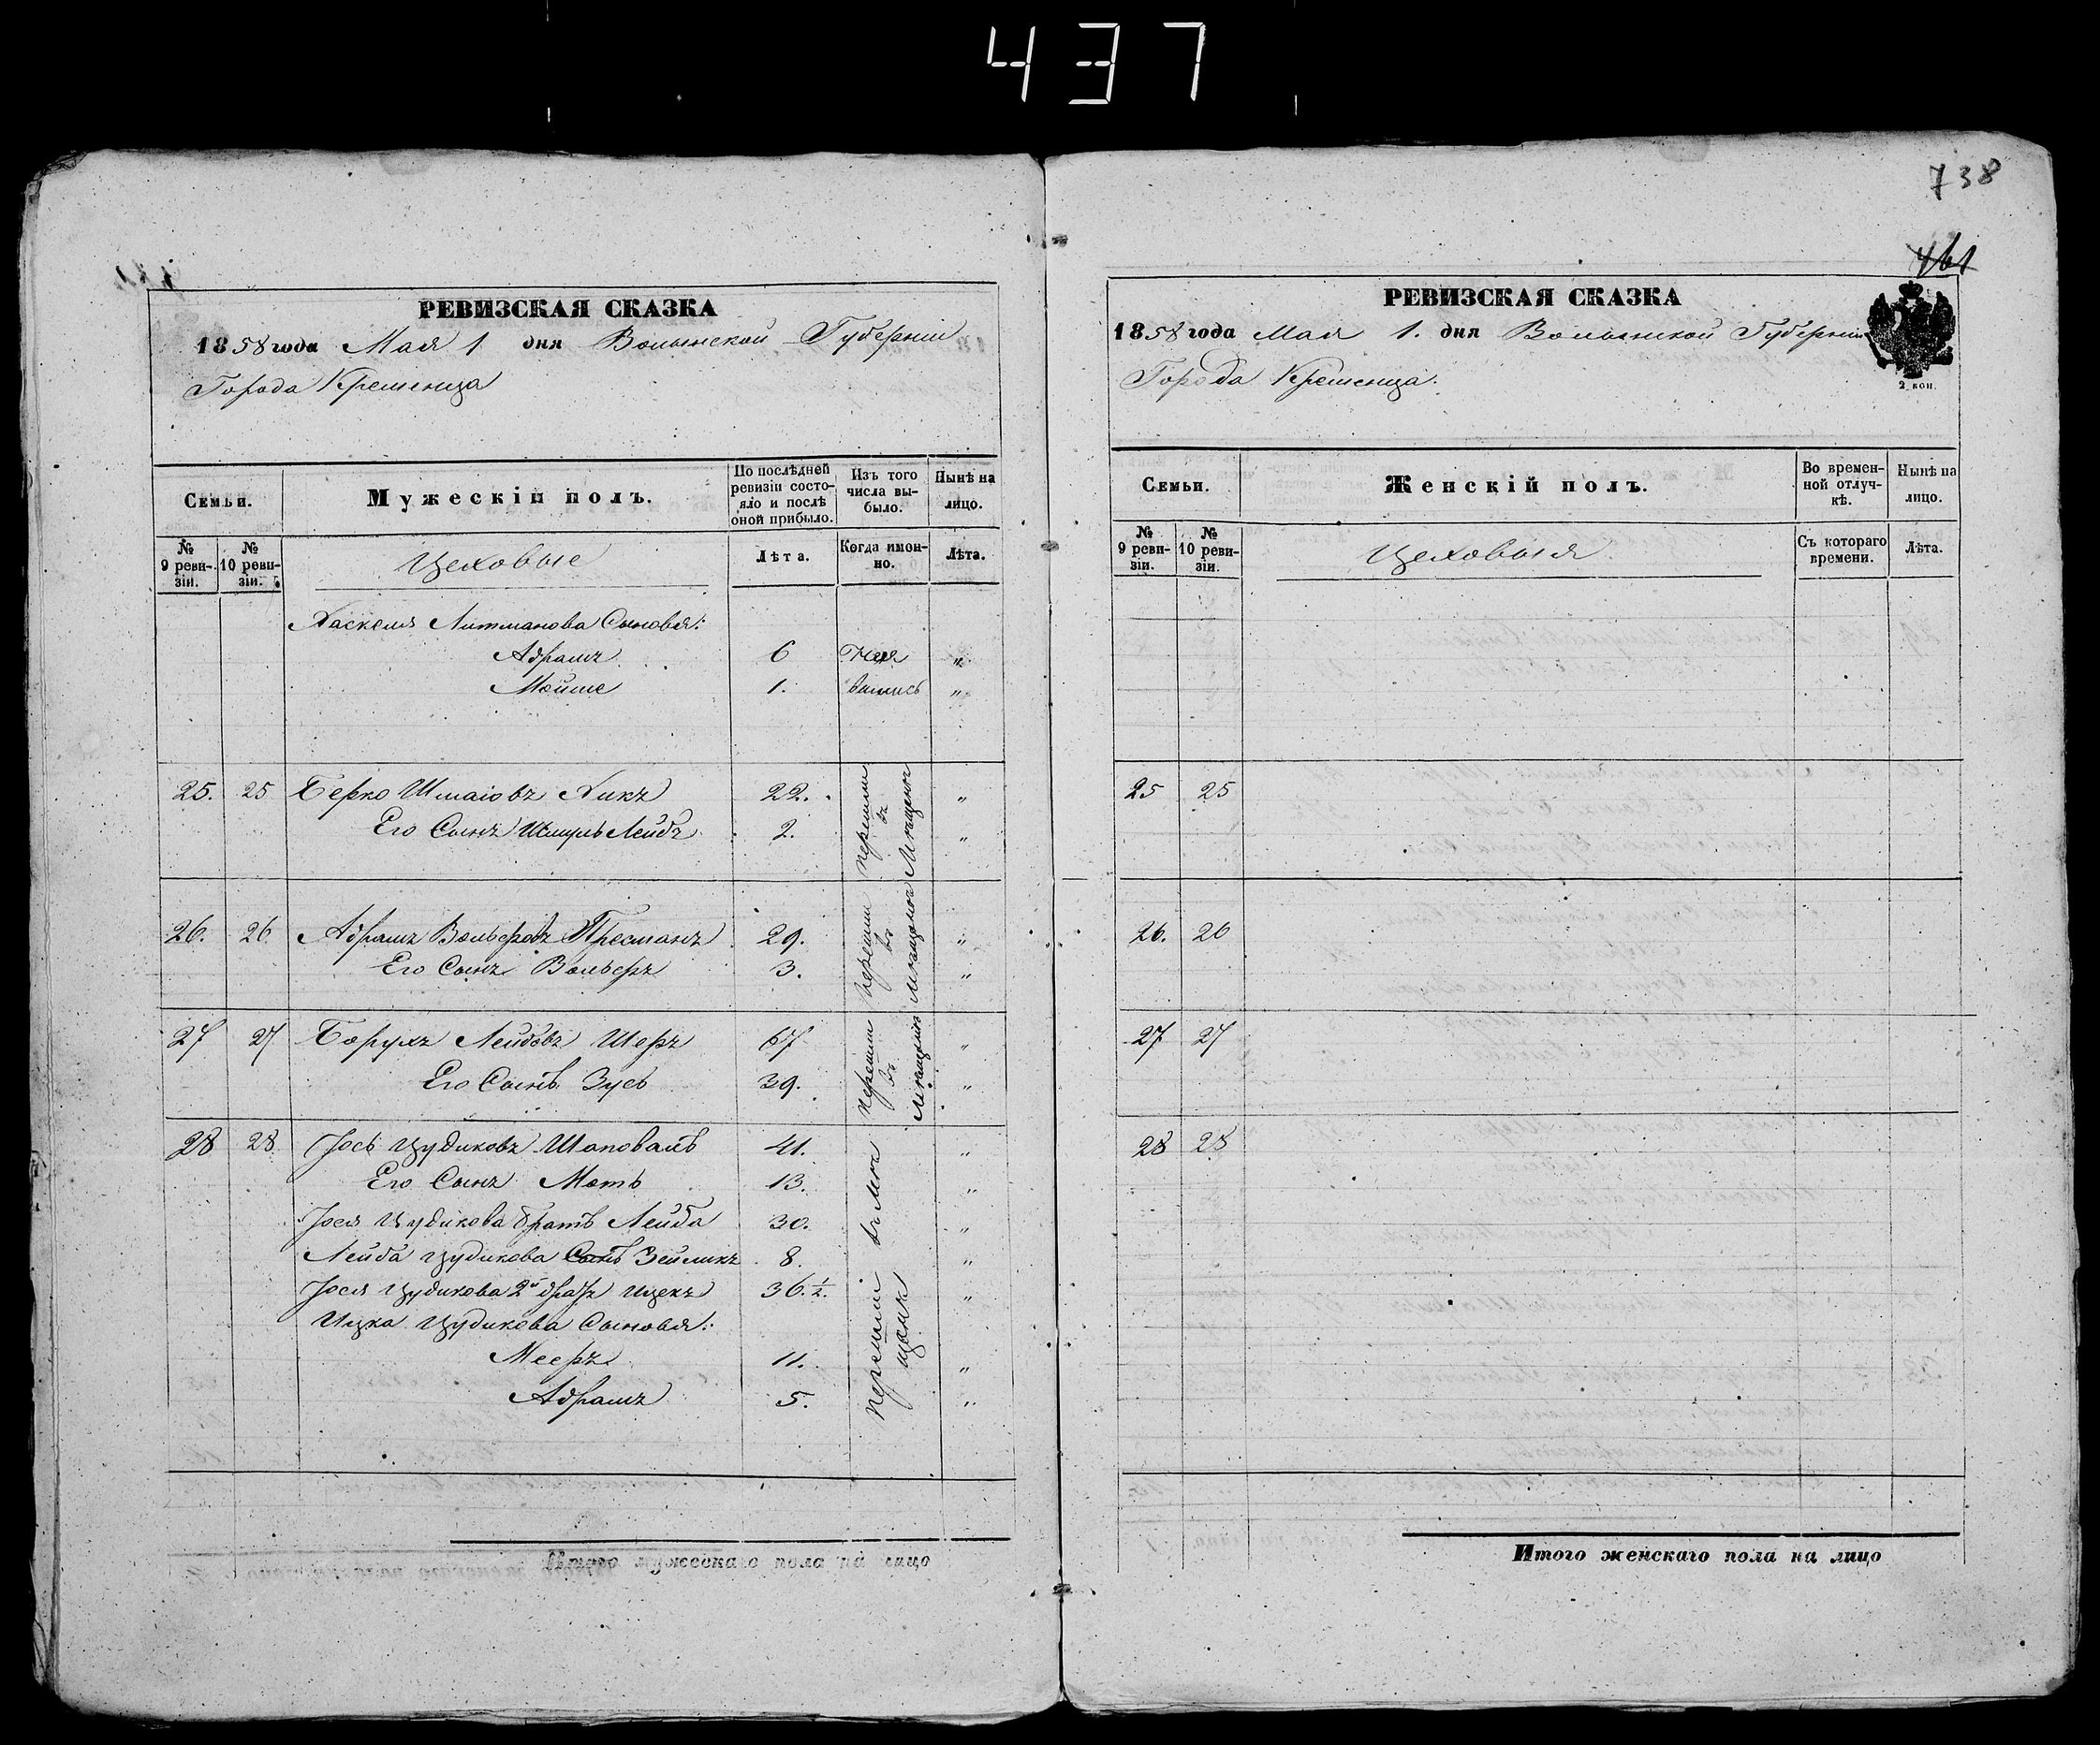 437
738
461
РЕВИЗСКАЯ СКАЗКА
1858 года Мая 1 дня Волынской Губерніи
Города Кременца
Семьи.
Мужескій полъ.
По послѣдней ревизіи состояло и послѣ оной прибыло.
Изъ того числа выбыло.
Нынѣ на лицо.
№ 9 ревизіи.
№ 10 ревизіи.
Цеховые
Лѣта.
Когда имонно.
Лѣта.
Хаскеля Литманова Сыновья:
Абрамъ 6 „
Мойше 1. „
25. 25 Берко Шмаіовъ Хикъ 22. перешли въ „
Его Сынъ Шмуль Лейбъ 2. „
26. 26 Абрамъ Вольфовъ Пресманъ 29. перешли въ „
Его Сынъ Вольфъ 3. „
27 27 Борухъ Лейбовъ Шеръ 67 перешли въ „
Его Сынъ Зусь 39. „
28 28 Іось Цудиковъ Шаповалъ 41. Перешли въ Мѣщане „
Его Сынъ Моть 13. „
Іося Цудикова братъ Лейба 30. „
Лейба Цудикова Сынъ Зейликъ 8. „
Іося Цудикова 2й братъ Ицекъ 36.½. „
Ицка Цудикова Сыновья:
Мееръ 11. „
Абрамъ 5. „
Итого мужескаго пола на лицо
РЕВИЗСКАЯ СКАЗКА
1858 года Мая 1. дня Волынской Губерніи
Города Кременца.
2 коп.
Семьи.
Женскій полъ.
Во временной отлучкѣ.
Нынѣ на лицо.
№ 9 ревизіи.
№ 10 ревизіи.
Цеховыя
Съ котораго времени.
Лѣта.
25 25
26. 26
27 27
28 28
Итого женскаго пола на лицо